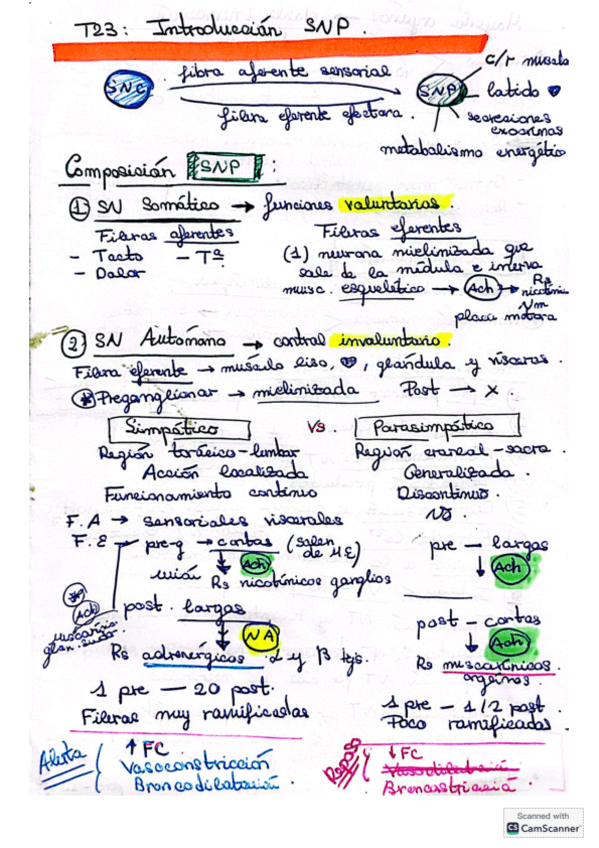 T23: Introducción SNP.
SNC fibra aferente sensorial SNP c/r músculo
latido
fibra eferente efectora.
secreciones exocrinas
metabolismo energético
Composición SNP :
① SN Somático → funciones voluntarias.
Fibras aferentes
- Tacto - Tª
- Dolor
Fibras eferentes
(1) neurona mielinizada que
sale de la médula e inerva
musc. esquelético → Ach → Rs
nicotínic
Nm
placa motora
② SN Autónomo → control involuntario
Fibra eferente → músculo liso, ♥, glándula y vísceras.
Preganglionar → mielinizada Post → X.
Simpático Vs. Parasimpático
Región torácico-lumbar Región craneal-sacra
Acción localizada Generalizada.
Funcionamiento continuo Discontinuo.
F.A → sensoriales viscerales No.
F.E → pre-g → cortas (salen de ME) pre - largas
Ach Ach
unión Rs nicotínicos ganglios
Ach
post. largas post - cortas
NA Ach
Rs adrenérgicos α y β Rs muscarínicos
órganos.
1 pre — 20 post. 1 pre - 1/2 post.
Fibras muy ramificadas Poco ramificadas.
Alerta
↑FC
Vasoconstricción
Broncodilatación.
Reposo
↓FC
Vasodilatación
Scanned with
CS CamScanner